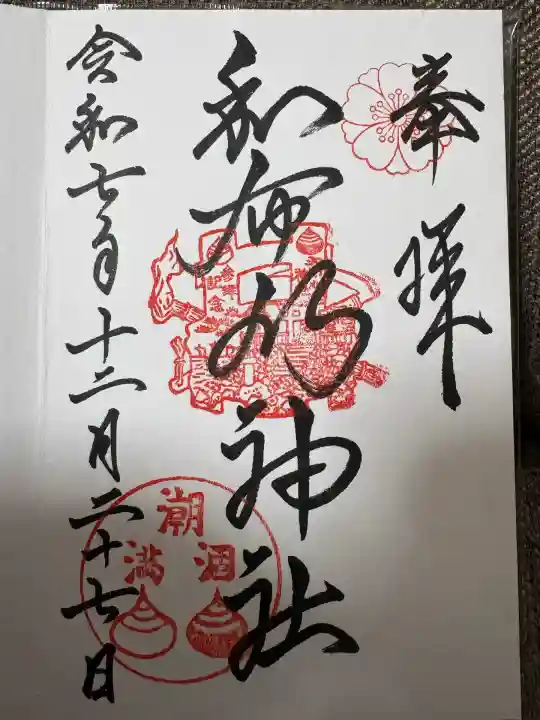 奉拝
和布刈神社
参拝記念
潮
涸
満
令和七年十二月二十七日